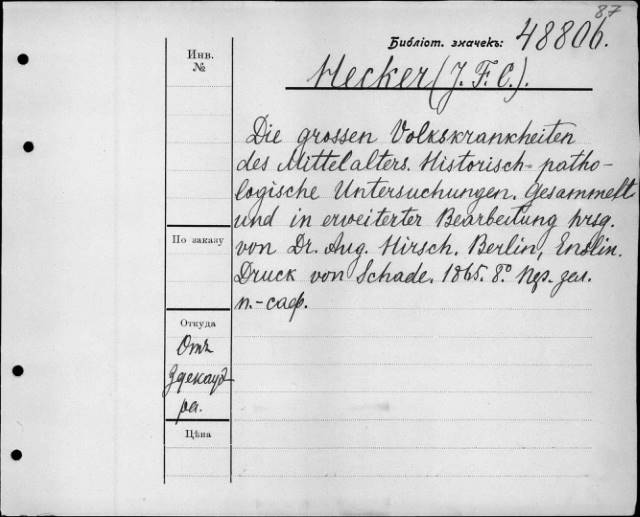 87
Библіот. значекъ: 48806.
Инв.
№
Hecker (J. F. C.).
Die grossen Volkskrankheiten
des Mittelalters. Historisch-patho-
logische Untersuchungen. Gesammelt
und in erweiterter Bearbeitung hrsg.
По заказу
von Dr. Aug. Hirsch. Berlin, Enslin.
Druck von Schade. 1865. 8° зел.
п.-саф.
Откуда
Отъ
Здекауэ-
ра.
Цѣна